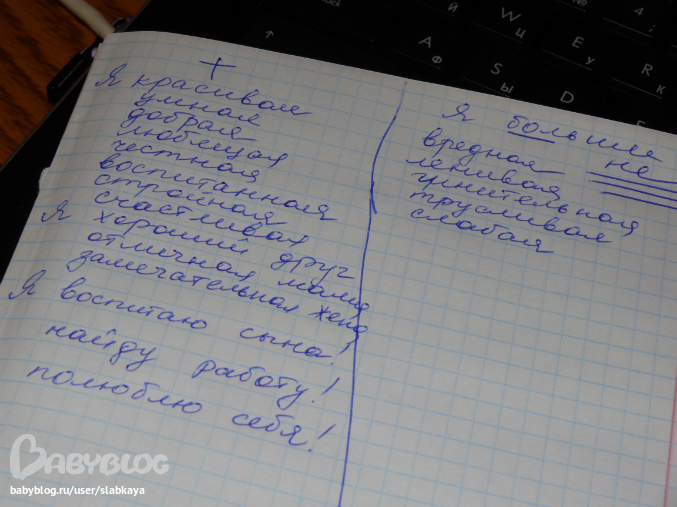 +
Я красивая
умная
добрая
любящая
честная
воспитанная
стройная
счастливая
Я хороший друг
отличная мама
замечательная жена
Я воспитаю сына!
найду работу!
полюблю себя!
Я больше не
вредная
ленивая
чинительная
трусливая
слабая
й
Ц
У
К
А
Ф
Ы
S
D
W
E
R
4
;
№
BABYBLOG
babyblog.ru/user/slabkaya